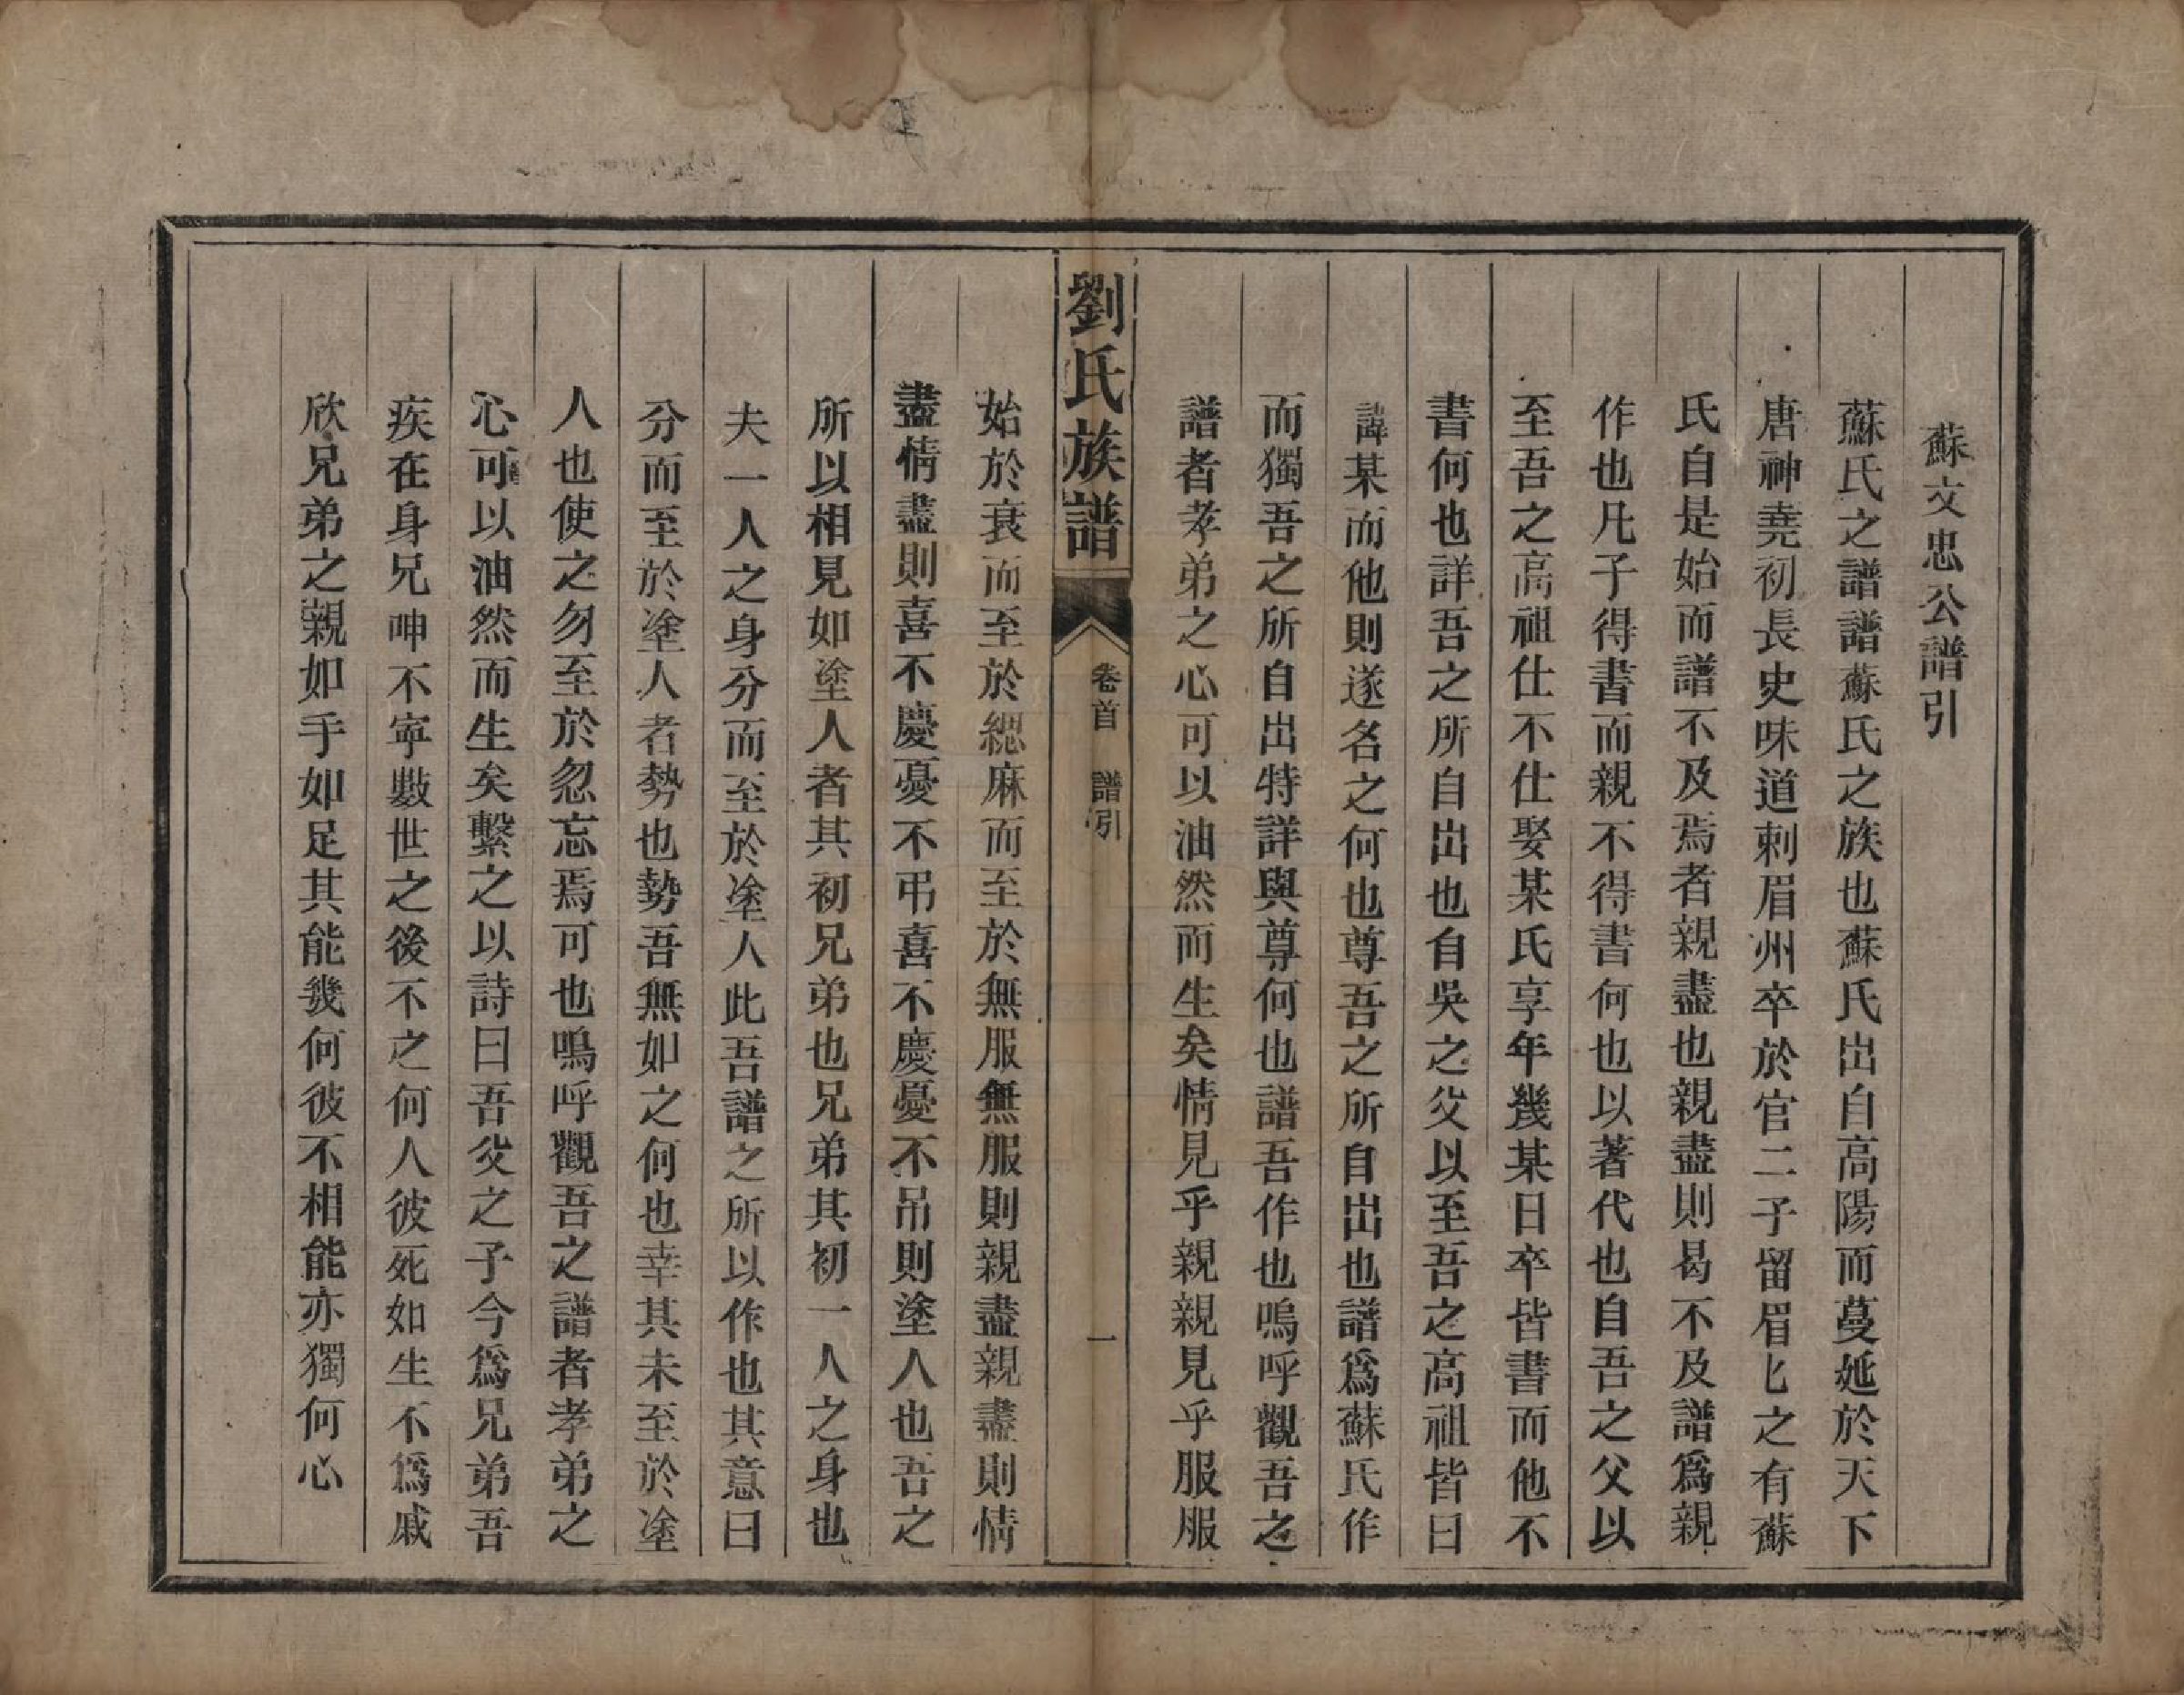 蘇文忠公譜引
蘇氏之譜譜蘇氏之族也蘇氏出自高陽而蔓延於天下
唐神堯初長史味道剌眉州卒於官二子留眉眉之有蘇
氏自是始而譜不及焉者親盡也親盡則曷不及譜爲親
作也凡子得書而親不得書何也以著代也自吾之父以
至吾之高祖仕不仕娶某氏享年幾某日卒皆書而他不
書何也詳吾之所自出也自吳之父以至吾之高祖皆曰
諱某而他則遂名之何也尊吾之所自出也譜爲蘇氏作
而獨吾之所自出特詳與尊何也譜吾作也嗚呼觀吾之
譜者孝弟之心可以油然而生矣情見乎親親見乎服服
劉氏族譜
卷首 譜引
一
始於衰而至於緦麻而至於無服無服則親盡親盡則情
盡情盡則喜不慶憂不弔喜不慶憂不吊則塗人也吾之
所以相見如塗人者其初兄弟也兄弟其初一人之身也
夫一人之身分而至於塗人此吾譜之所以作也其意曰
分而至於塗人者勢也勢吾無如之何也幸其未至於塗
人也使之勿至於忽忘焉可也嗚呼觀吾之譜者孝弟之
心可以油然而生矣繫之以詩曰吾父之子今爲兄弟吾
疾在身兄呻不寧數世之後不之何人彼死如生不爲戚
欣兄弟之親如手如足其能幾何彼不相能亦獨何心